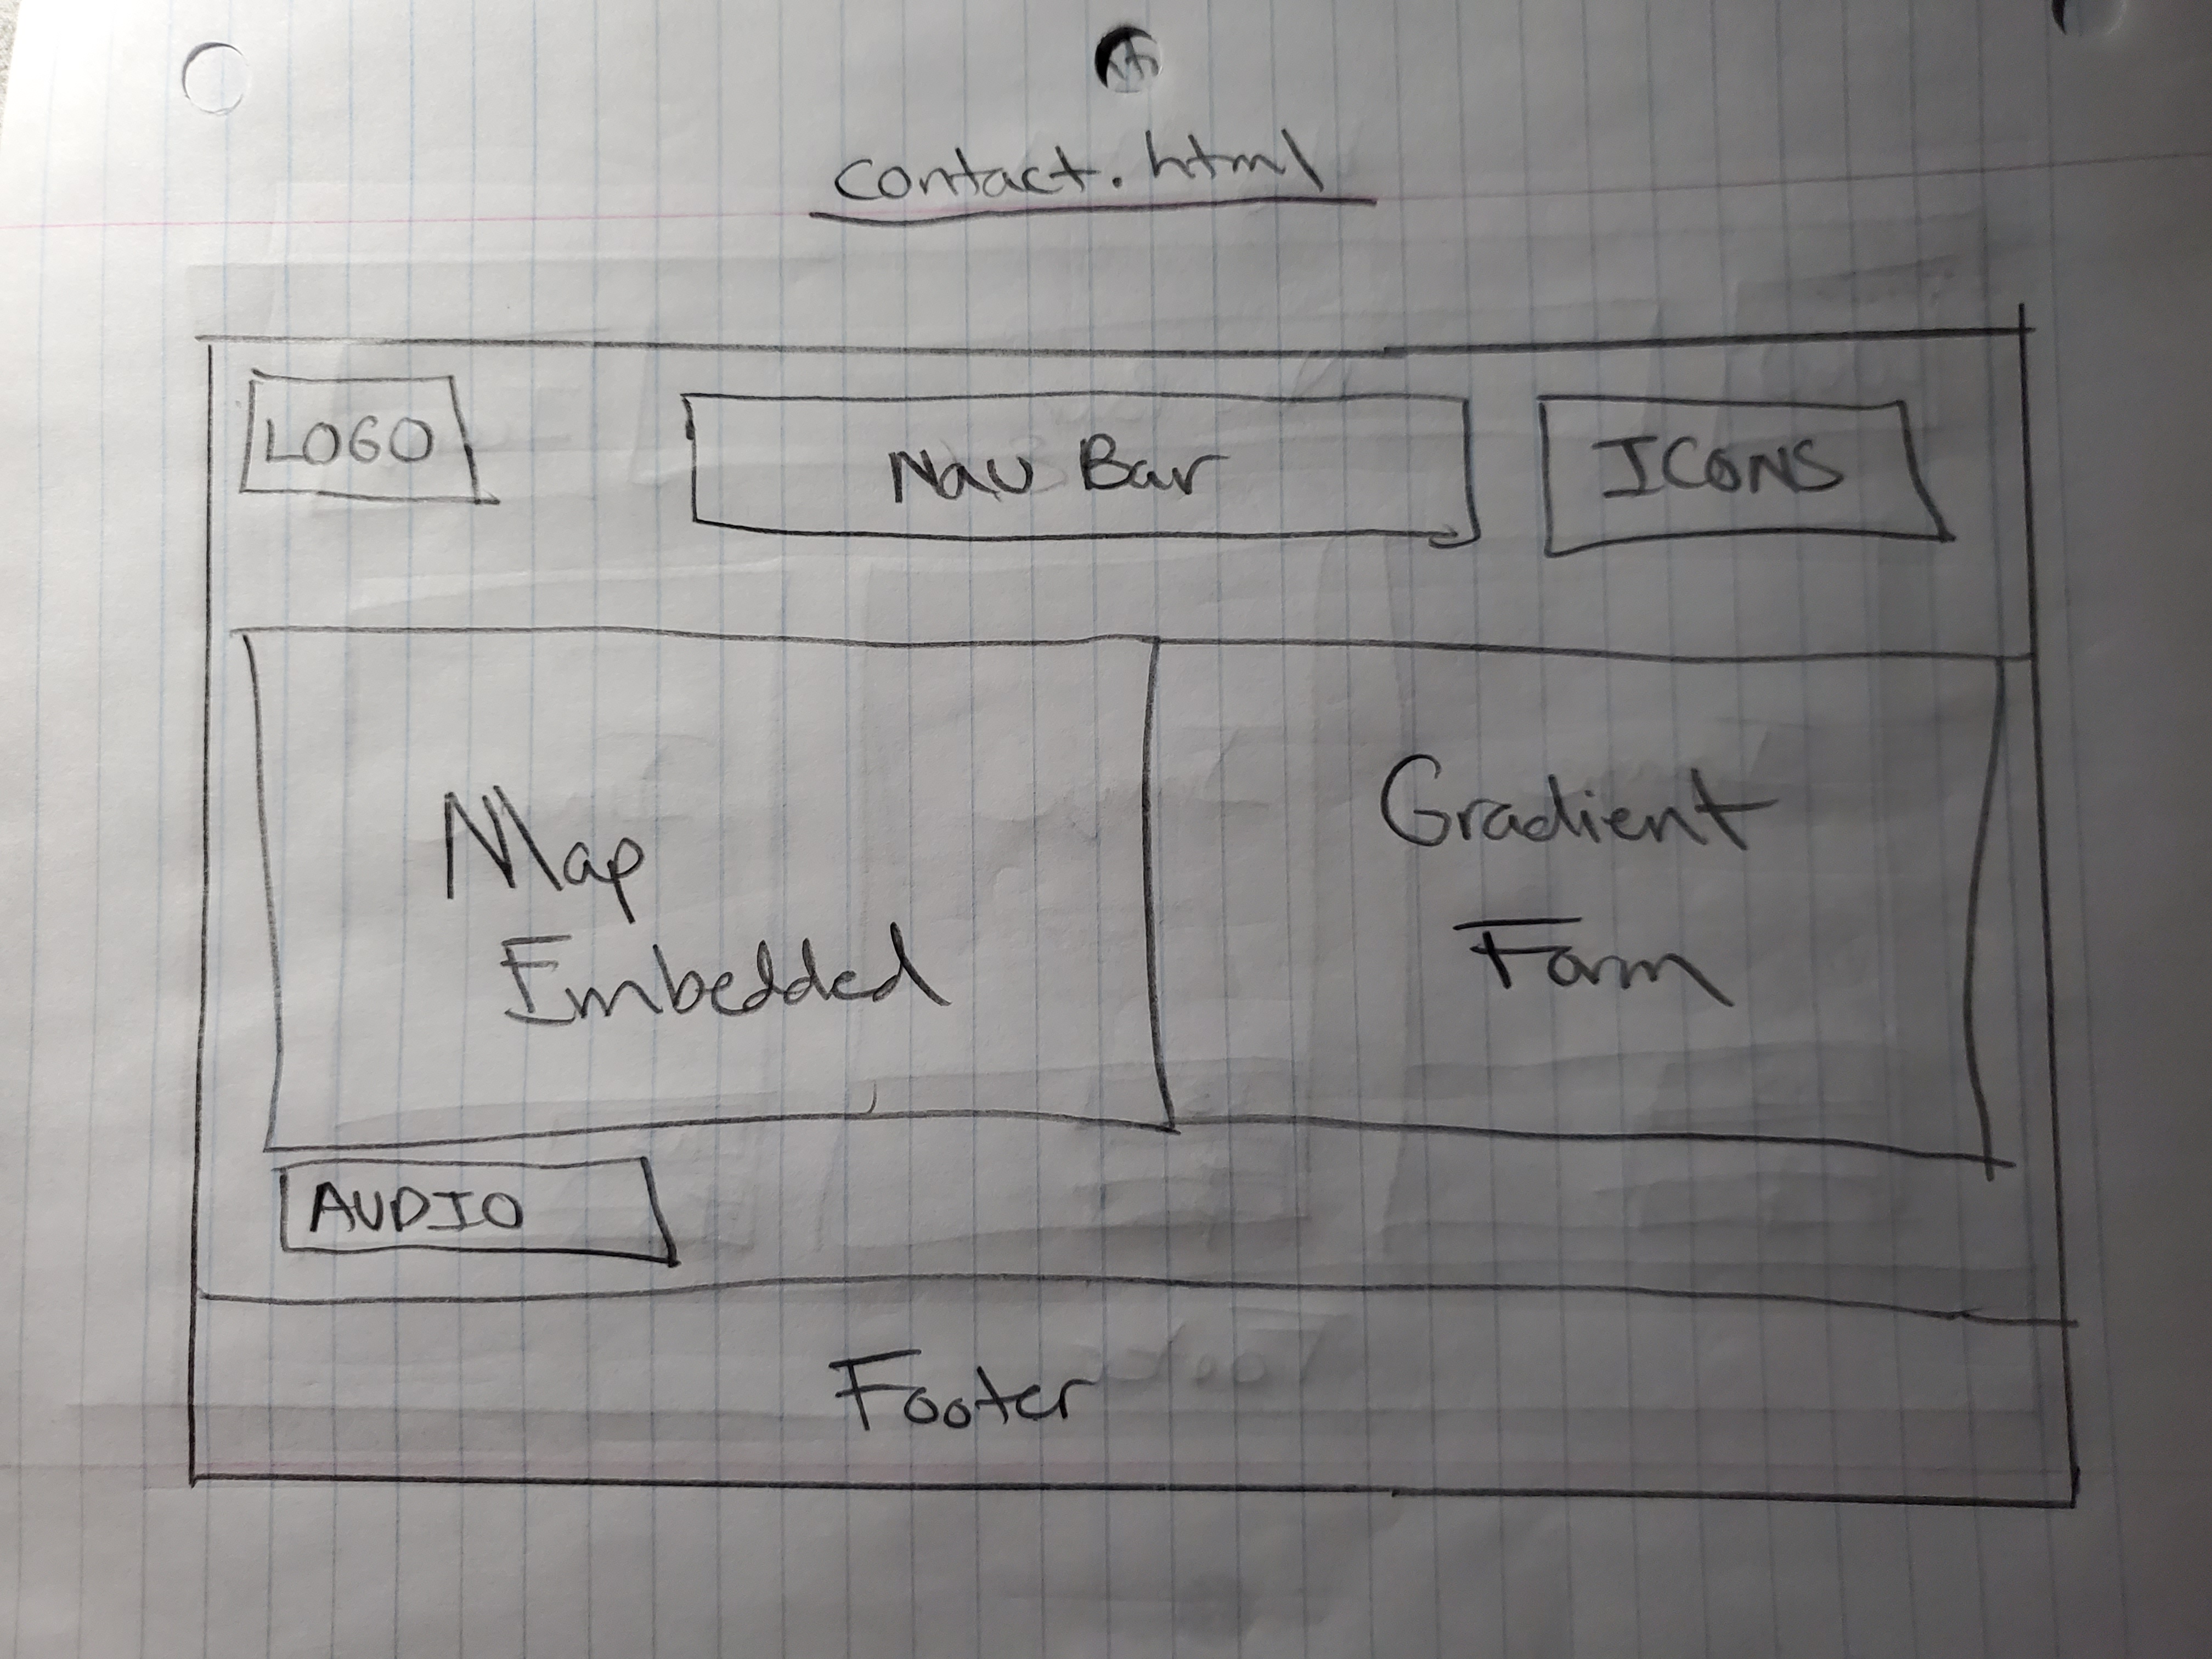 Contact.html
LOGO
Nav Bar
ICONS
Map
Embedded
Gradient
Form
AUDIO
Footer